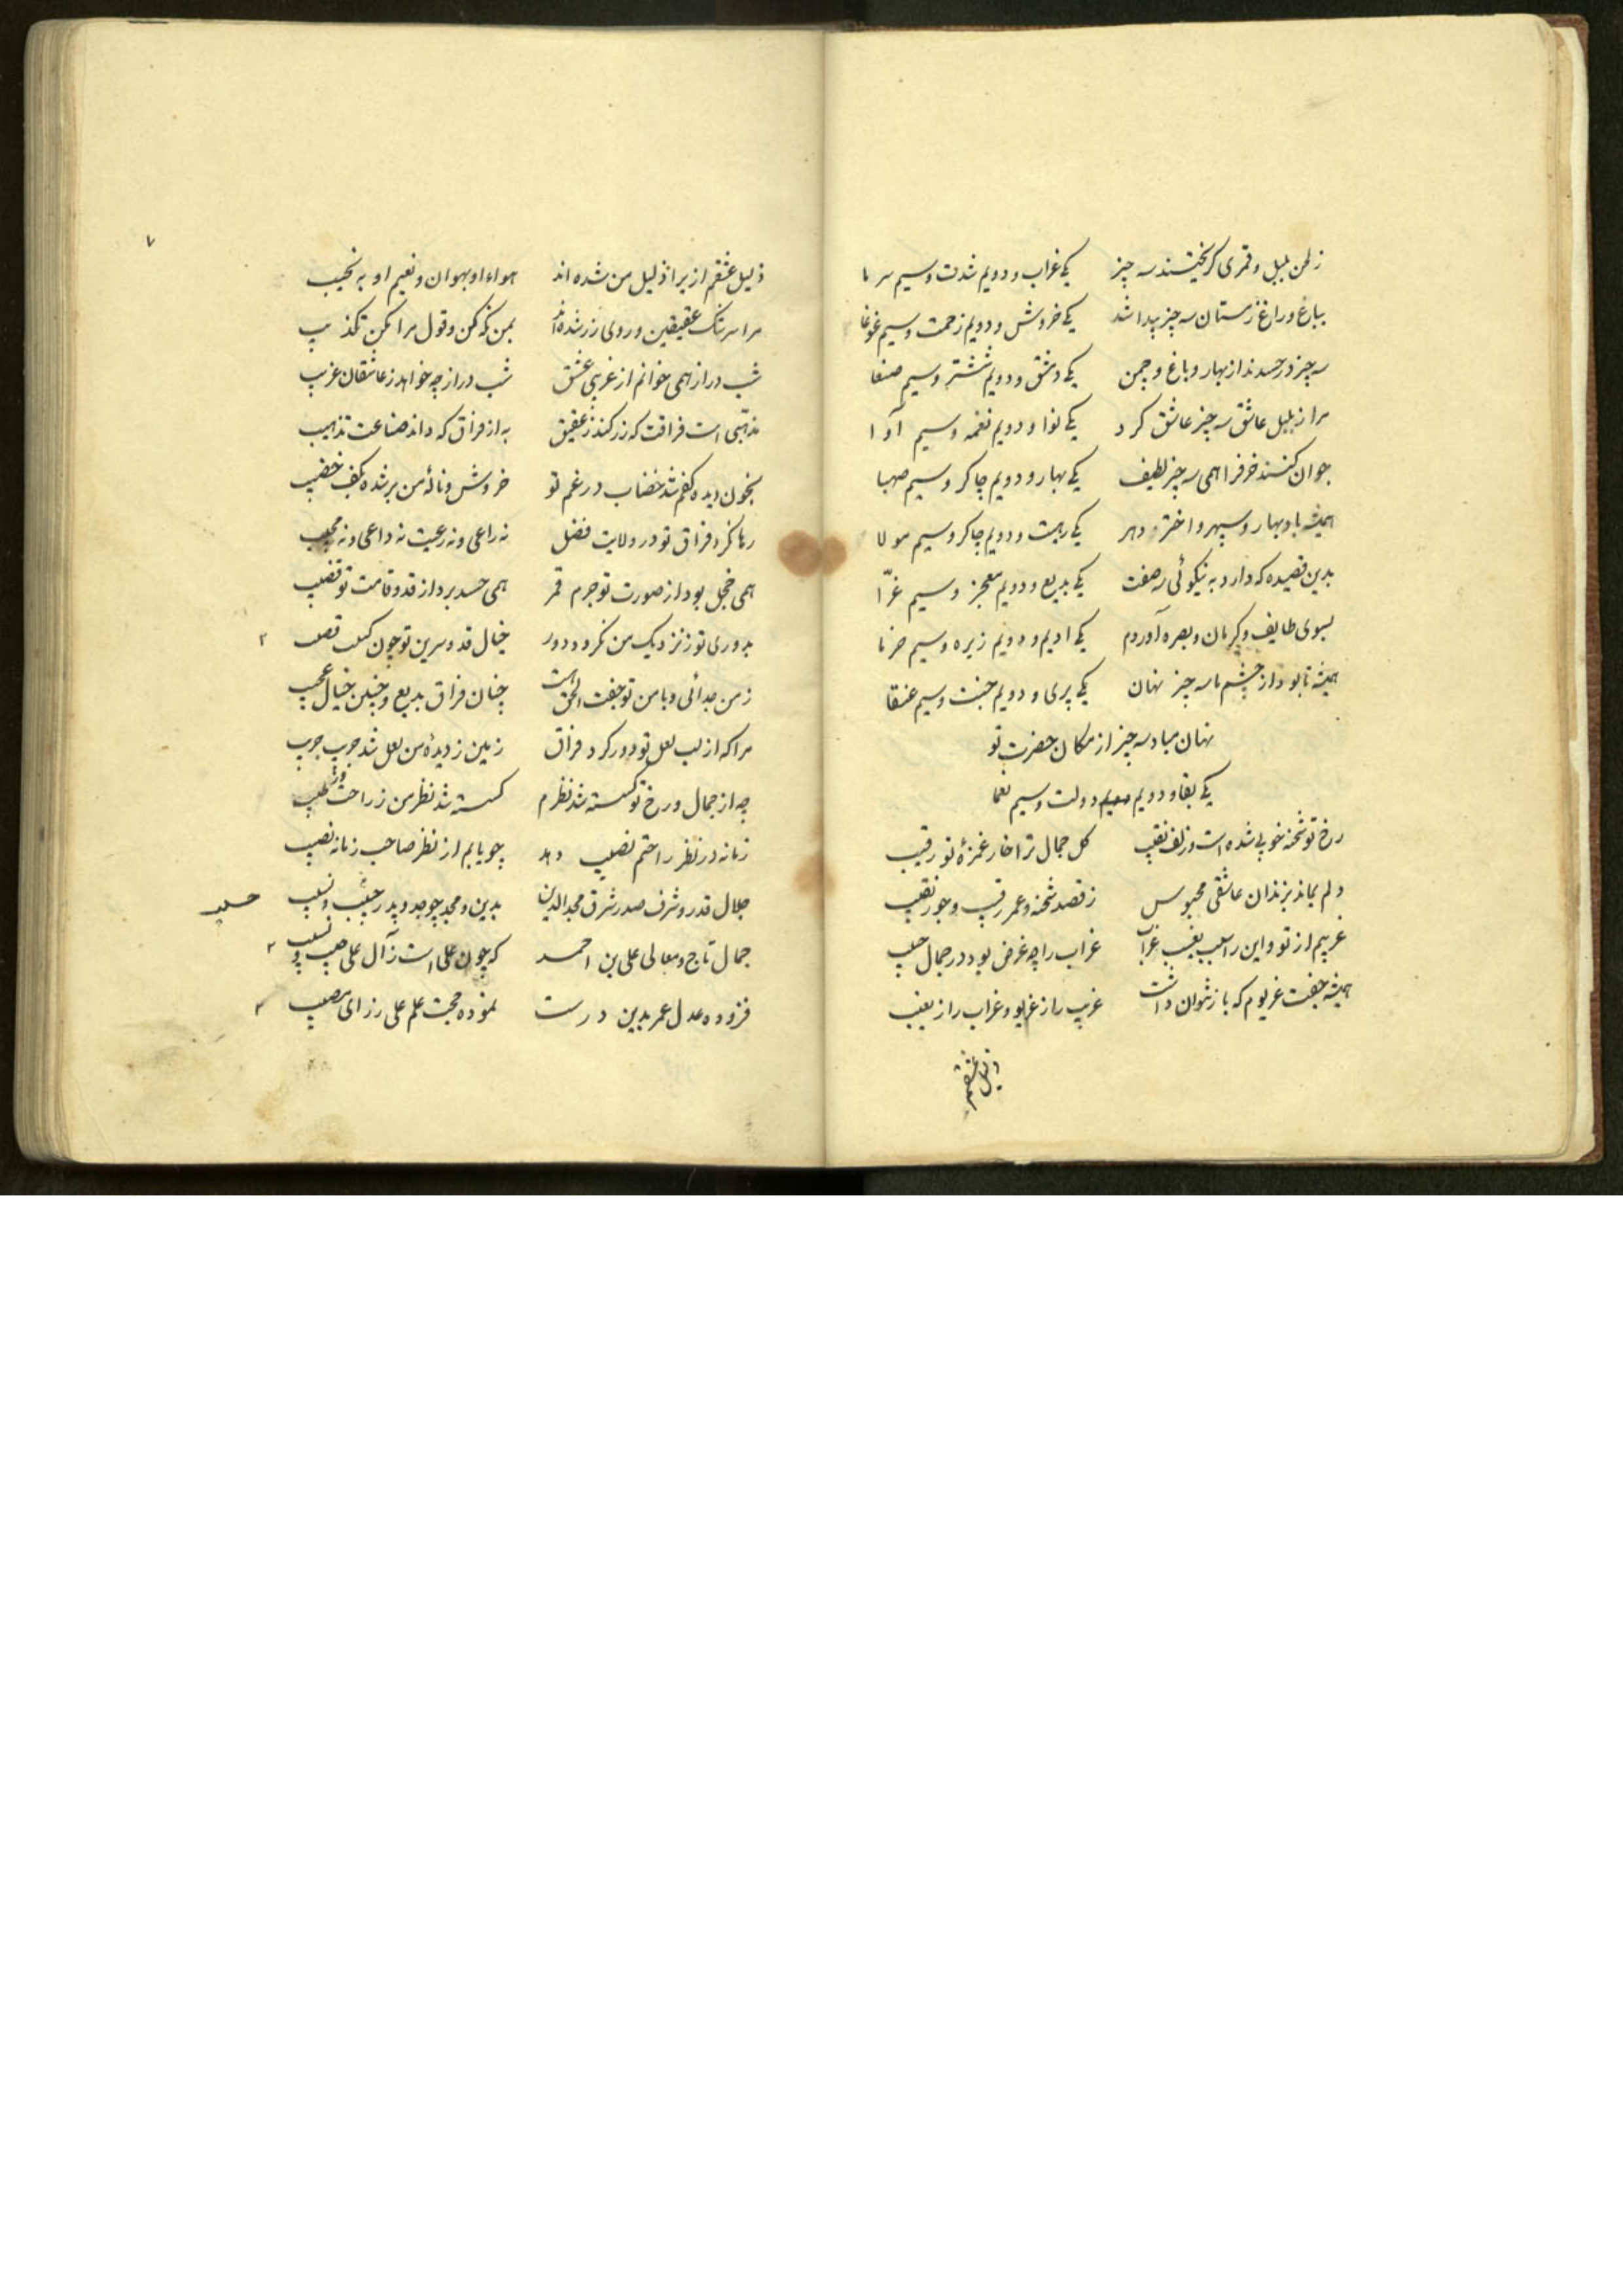 ز لحن بلبل و قمری گریختند سه چیز یکی غراب و دویم شدت و سیم سرما
بباغ و راغ زمستان سه چیز پیدا شد یکی خروش و دویم زحمت و سیم غوغا
سه چیز در حسدند از بهار و باغ و چمن یکی دمشق و دویم ششتر و سیم صنعا
مرا ز بلبل عاشق سه چیز عاشق کرد یکی نوا و دویم نغمه و سیم آوا
جوان کنند خرفرا همی سه چیز لطیف یکی بهار و دویم چاکر و سیم صهبا
همیشه باد بهار و سپهر و اختر دهر یکی رهیت و دویم چاکر و سیم مولا
بدین قصیده که دارد به نیکوئی سه صفت یکی بدیع و دویم معجز و سیم غرّا
بسوی طایف و کرمان و بصره آوردم یکی ادیم و دویم زیره و سیم خرما
همیشه تا بود از چشم ما سه چیز نهان یکی پری و دویم جنت و سیم عنقا
نهان مباد سه چیز از مکان حضرت تو
یکی بقا و دویم دولت و سیم نعما
رخ تو شحنه خوبی شده است و زلف نقیب گل جمال ترا خار غمزهٔ تو رقیب
دلم بماند بزندان عاشقی محبوس ز قصد شحنه و عمر رقیب و جور نقیب
غریبم از تو و این را سبب نعیب غراب غراب را چه غرض بود در جمال حبیب
همیشه جفت غریوم که باز نتوان داشت غریب را ز غریو و غراب را ز نعیب
ذلیل عشقم
۷
ذلیل عشقم ازیرا ذلیل من شده‌اند هواء او بهوان و نعیم او به نحیب
مرا سرشک عقیقین و روی زر شده‌اند بمن نگه کن و قول مرا مکن تکذیب
شب دراز همی خوانم از غریبی عشق شب دراز چه خواهد ز عاشقان غریب
مذهبی است فراقت که زر کند ز عقیق به از فراق که داند صناعت تذهیب
بخون دیده کفم شد خضاب در غم تو خروش و نالهٔ من بر شده بکف خضیب
رها نکرد فراق تو در ولایت فضل نه راعی و نه رعیت نه داعی و نه مجیب
همی خجل بود از صورت تو جرم قمر همی حسد برد از قد و قامت تو قضیب
بدوری تو ز نزدیک من نکردد دور خیال قد و سرین تو چون کثیب و قضیب
ز من جدائی و با من تو جفت الحق است چنان فراق بدیع و چنین خیال عجیب
مرا که از لب لعل تو دور کرد فراق زمین ز دیدهٔ من لعل شد جریب جریب
چه از جمال و رخ تو گسسته شد نظرم گسسته شد نظر من ز راحت و ز طیب
زمانه در نظر راحتم نصیب دهد چو یابم از نظر صاحب زمانه نصیب
جلال قدر و شرف صدر شرق مجدالدین بدین و مجد چو جد و پدر حسیب و نسیب
حسیب
جمال تاج و معالی علی بن احمد که چون علی است ز آل علی حسیب و نسیب
فزوده عدل عمر بدین درست نموده حجت علم علی ز رای مصیب